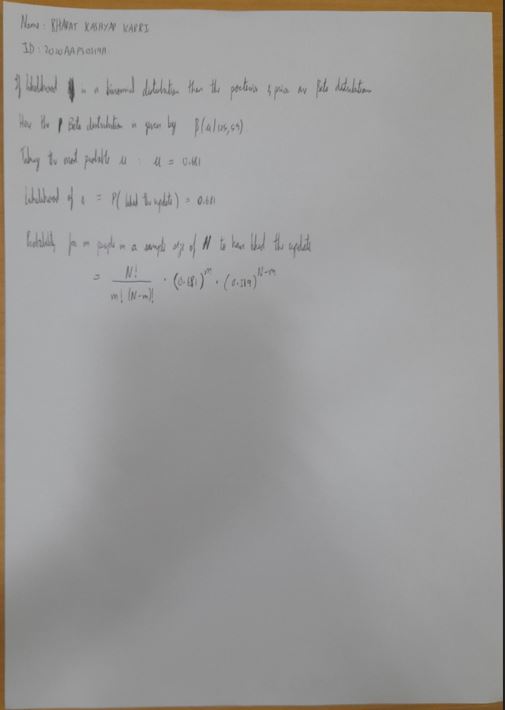 Name: BHARAT KASHYAP KARRI
ID: 2020AAPS0
If likelihood is in a binomial distribution then the posterior & prior are Beta distribution
the Beta distribution is given by β(
Taking the most probable u : u =
Likelihood of = P( liked the update) =
Probability for m people in a sample size of N to have liked the update
= N! / m! (N-m)! · ( )^m · ( )^N-m